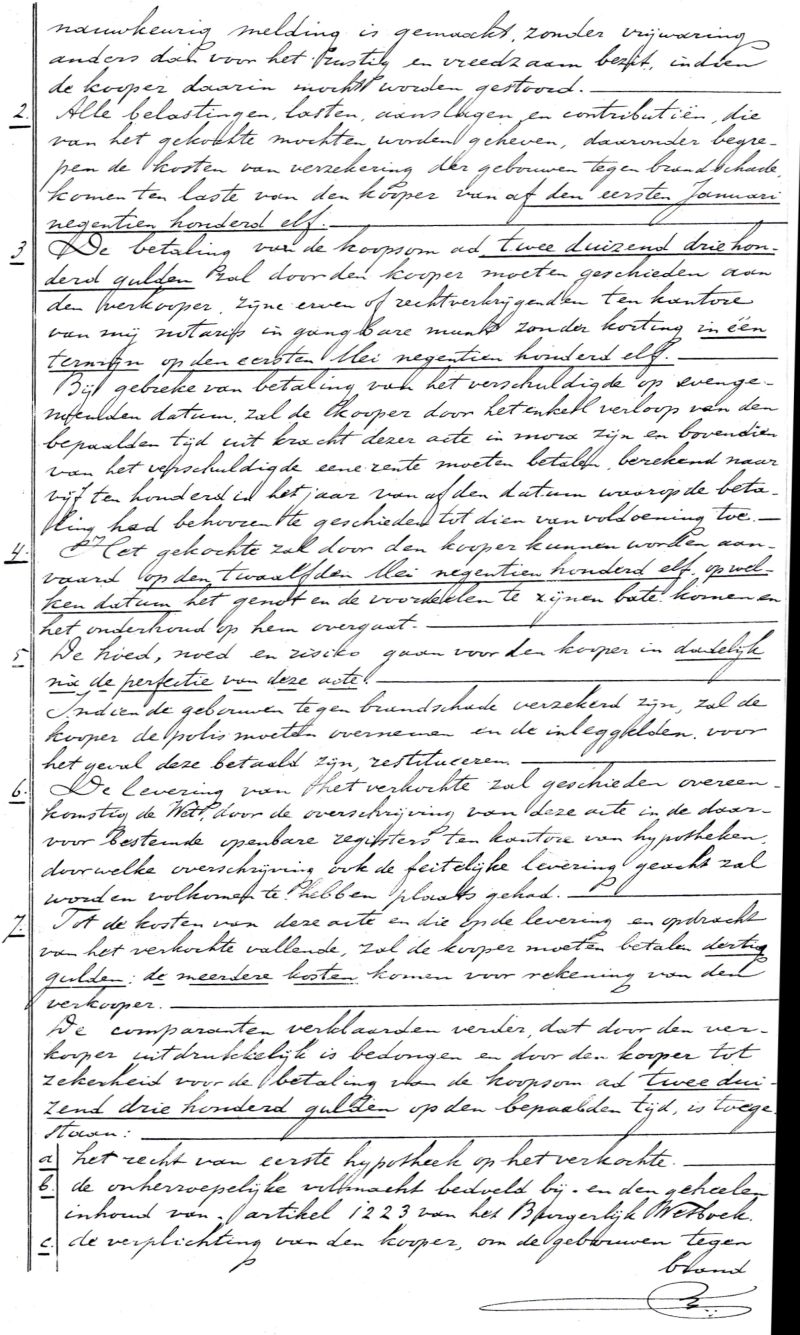 nauwkeurig melding is gemaakt, zonder vrijwaring
anders dan voor het rustig en vreedzaam bezit, indien
de kooper daarin mocht worden gestoord.
2. Alle belastingen, lasten, aanslagen en contributiën, die
van het gekochte mochten worden geheven, daaronder begre-
pen de kosten van verzekering der gebouwen tegen brandschade,
komen ten laste van den kooper vanaf den eersten Januari
negentien honderd elf.
3 De betaling van de koopsom ad twee duizend drie hon-
derd gulden zal door den kooper moeten geschieden aan
den verkooper, zijne erven of rechtverkrijgenden ten kantore
van mij notaris in gangbare munt zonder korting in één
termijn op den eersten Mei negentien honderd elf.
Bij gebreke van betaling van het verschuldigde op evenge-
melden datum, zal de kooper door het enkel verloop van den
bepaalden tijd uit kracht dezer acte in mora zijn en bovendien
van het verschuldigde eene rente moeten betalen, berekend naar
vijf ten honderd in het jaar vanaf den datum waarop de beta-
ling had behooren te geschieden tot dien van voldoening toe.
4. Het gekochte zal door den kooper kunnen worden aan-
vaard op den twaalfden Mei negentien honderd elf, op wel-
ken datum het genot en de voordeelen te zijnen bate komen en
het onderhoud op hem overgaat.
5 De hoed, noed en risiko gaan voor den kooper in dadelijk
na de perfectie van deze acte.
Indien de gebouwen tegen brandschade verzekerd zijn, zal de
kooper de polis moeten overnemen en de inleggelden, voor
het geval deze betaald zijn, restitueeren.
6. De levering van het verkochte zal geschieden overeen-
komstig de Wet, door de overschrijving van deze acte in de daar-
voor bestemde openbare registers ten kantore van hypotheken,
door welke overschrijving ook de feitelijke levering geacht zal
worden volkomen te hebben plaats gehad.
7. Tot de kosten van deze acte en die op de levering en opdracht
van het verkochte vallende, zal de kooper moeten betalen dertig
gulden; de meerdere kosten komen voor rekening van den
verkooper.
De comparanten verklaarden verder, dat door den ver-
kooper uitdrukkelijk is bedongen en door den kooper tot
zekerheid voor de betaling van de koopsom ad twee dui-
zend drie honderd gulden op den bepaalden tijd, is toege-
staan:
a het recht van eerste hypotheek op het verkochte.
b. de onherroepelijke volmacht bedoeld bij- en den geheelen
inhoud van- artikel 1223 van het Burgerlijk Wetboek.
c. de verplichting van den kooper, om de gebouwen tegen
brand